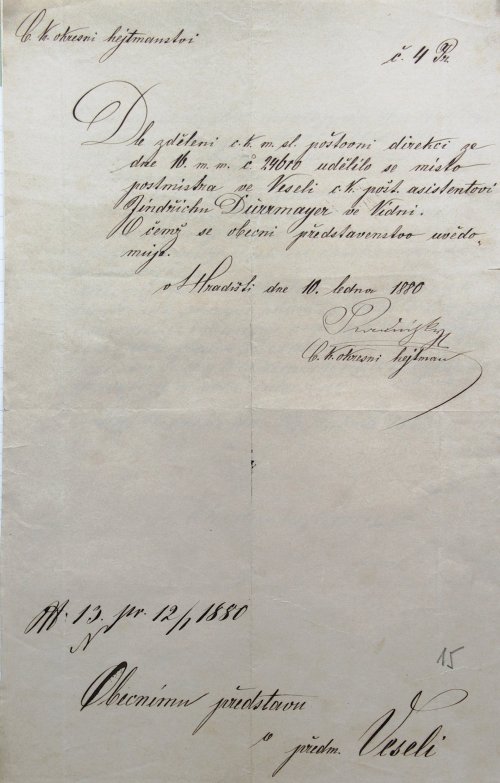 C. k. okresní hejtmanství
č. 4 Pr.
Dle zdělení c. k. m. sl. poštovní direkcí ze
dne 16. m. m. č 24610 udělilo se místo
postmistra ve Veselí c. k. pošt. asistentovi
Jindřichu Dürrmayer ve Vídni.
O čemž se obecní představenstvo uvědo-
muje.
v Hradišti dne 10. ledna 1880
C. k. okresní hejtman
13. pr. 12/1 1880
N
15
Obecnímu představu
v předm. Veselí